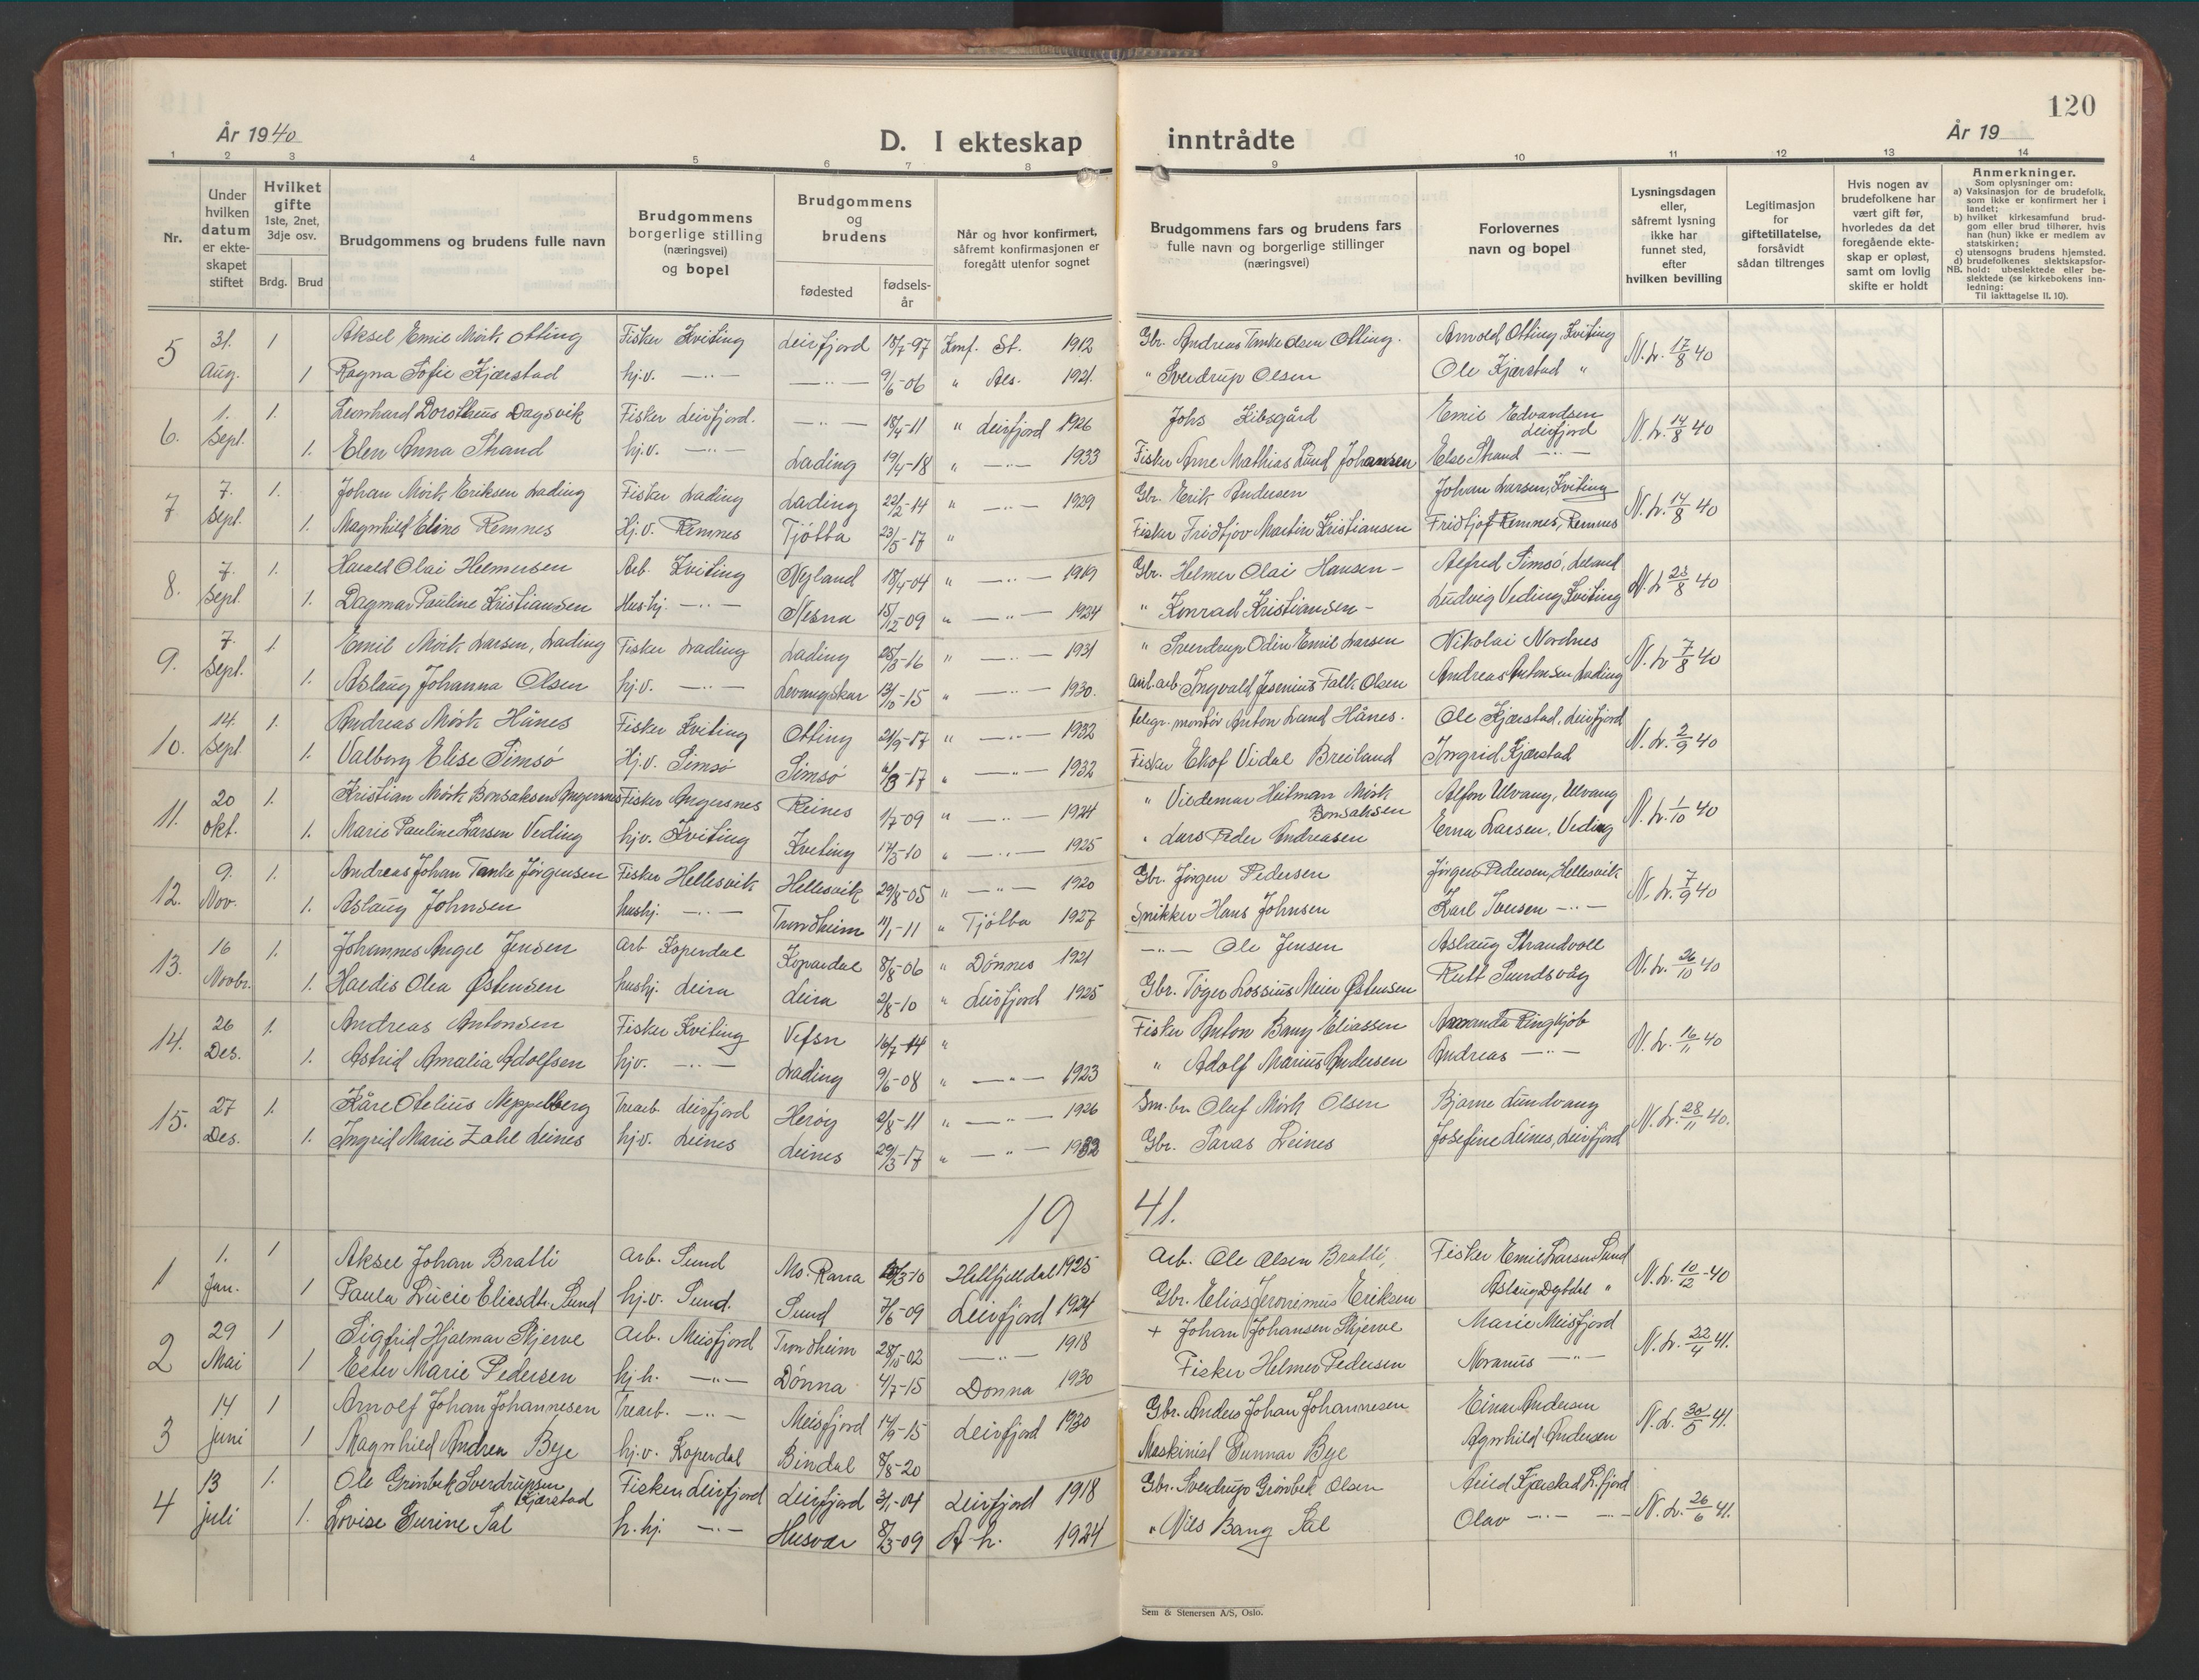 120
År 1940
D. I ekteskap inntrådte
År 19
1 2 3 4 5 6 7 8 9 10 11 12 13 14
Nr.
Under hvilken datum er ekteskapet stiftet
Hvilket gifte 1ste, 2net, 3dje osv.
Brdg. Brud
Brudgommens og brudens fulle navn
Brudgommens borgerlige stilling (næringsvei) og bopel
Brudgommens og brudens
fødested
fødselsår
Når og hvor konfirmert, såfremt konfirmasjonen er foregått utenfor sognet
Brudgommens fars og brudens fars fulle navn og borgerlige stillinger (næringsvei)
Forlovernes navn og bopel
Lysningsdagen eller, såfremt lysning ikke har funnet sted, efter hvilken bevilling
Legitimasjon for giftetillatelse, forsåvidt sådan tiltrenges
Hvis nogen av brudefolkene har vært gift før, hvorledes da det foregående ekteskap er opløst, samt om lovlig skifte er holdt
Anmerkninger.
Som oplysninger om:
a) Vaksinasjon for de brudefolk, som ikke er konfirmert her i landet;
b) hvilket kirkesamfund brudgom eller brud tilhører, hvis han (hun) ikke er medlem av statskirken;
c) utensogns brudens hjemsted.
d) brudefolkenes slektskapsforhold: ubeslektede eller beslektede (se kirkebokens innledning:
NB. Til iakttagelse II. 10).
5 31. Aug. 1 Aksel Emil Mørk Otting Fisker Kviting Leirfjord 18/7-97 Konf. St. 1912 Gbr. Andreas Tanke Olsen Otting. Arnold Otting, Kviting N. L. 17/8 40
1 Ragna Sofie Kjærstad hj.v. —"— —"— 9/6-06 " Als. 1921. " Sverdrup Olsen Ole Kjærstad "
6. 1. Sept. 1. Leonhard Dorotheus Dagsvik Fisker Leirfjord. —"— 18/4-11 " Leirfjord 1926 Johs Kibsgård Emil Edvardsen Leirfjord N. L. 14/8 40
1. Elen Anna Strand hj.v. —"— Lading 19/4-18 " —"— 1933 Fisker Arne Mathias Lund Johansen Else Strand —"—
7 7. Sept. 1. Johan Mørk Eriksen Lading Fisker Lading Lading 22/2-14 " —"— 1929 Gbr. Erik Andersen Johan Larsen, Kviting N. L. 14/8 40
1. Magnhild Elino Remnes Hj.v. Remnes Tjøtta 23/5-17 " Fisker Fridtjov Martin Kristiansen Fridtjof Remnes, Remnes
8. 7. Sept. 1. Harald Olai Helmersen Arb. Kviting Nyland 18/4-04 " —"— 1919 Gbr. Helmer Olai Hansen - Alfred Simsø, Leland N. L. 23/8 40
1. Dagmar Pauline Kristiansen Hushj. —"— Nesna 15/12-09 " —"— 1924 " Konrad Kristiansen - Ludvig Veding Kviting
9. 7. Sept. 1. Emil Mørk Larsen, Lading Fisker Lading Lading 25/3-16 " —"— 1931 " Sverdrup Odin Emil Larsen Nikolai Nordnes N. L. 7/8 40
1. Aslaug Johanna Olsen hj.v. —"— Levangskar 13/10-15 " —"— 1930. anl.arb. Ingvald Jesenius Falk Olsen Andreas Antonsen Lading
10. 14. Sept. 1. Andreas Mørk Hånes Fisker Kviting Otting 21/9-17 " —"— 1932 telegr. montør Anton Lund Hånes. Ole Kjærstad, Leirfjord N. L. 2/9 40
1. Valborg Elise Simsø Hj.v. Simsø Simsø /3-17 " —"— 1932 Fisker Vidal Breiland Ingrid Kjærstad
11. 20 okt. 1. Kristian Mørk Bonsaksen Angersnes Fisker Angersnes Reines 1/7-09 " —"— 1924 " Valdemar Heitman Mørk Bonsaksen Alfon Ulvang, Ulvang N. L. 1/10 40
1. Marie Pauline Larsen Veding hjv. Kviting Kviting 14/5-10 " —"— 1925 " Lars Peder Andreasen Erna Larsen, Veding
12. 9. Nov. 1. Andreas Johan Tanke Jørgensen Fisker Hellesvik Hellesvik 29/8-05 " —"— 1920 Gbr. Jørgen Pedersen Jørgen Pedersen, Hellesvik N. L. 7/9 40
1. Aslaug Johnsen hushj. —"— Trondheim 11/1-11 " Tjøtta 1927 Snikker Hans Johnsen Karl Iversen —"—
13. 16 Novbr. 1. Johannes Angel Jensen arb Koperdal Kopardal 8/8-06 " Dønnes 1921 —"— Ole Jensen Aslaug Strandvoll N. L. 26/10 40
1. Haldis Olea Østensen hushj. Leira Leira 2/8-10 " Leirfjord 1925 Gbr. Tøger Lossius Meier Østensen Rutt Sundsvåg
14. 26 Des. 1. Andreas Antonsen Fisker Kviting Vefsn 16/7-14 " Fisker Anton Bang Eliassen Amanda Ringkjøb N. L. 16/11 40
1. Astrid Amalia Adolfsen hjv. —"— Lading 9/6-08 " —"— 1923 " Adolf Marius Andersen Andreas —"—
15. 27 Des. 1. Kåre Otelius Neppelberg Trearb. Leirfjord Herøy 2/8-11 " —"— 1926 Sm.br. Oluf Mørk Olsen Bjarne Lundvang N. L. 28/11 40.
1. Ingrid Marie Zahl Leines hj.v. Leines Leines 29/3-17 " —"— 1932 Gbr. Paras Leines Josefine Leines, Leirfjord
1941.
1 1. Jan. 1 Aksel Johan Bratli arb. Sund Mo. Rana /3-10 Hellfjelldal 1925 arb. Ole Olsen Bratli, Fisker Emil Larsen Sund N. L. 10/12-40
1 Paula Lucie Eliasdtr. Sund hj.v. Sund. Sund 7/6-09 Leirfjord 1924 Gbr. Elias Jeronimus Eriksen Aslaug Dybdal "
2 29 Mai 1 Sigfrid Hjalmar Skjerve arb. Meisfjord Trondheim 28/10-02 —"— 1918 + Johan Johansen Skjerve Marie Meisfjord N. L. 22/4 41.
1 Ester Marie Pedersen hj.h. —"— Dønna 4/7-15 Dønna 1930 Fisker Helmer Pedersen Moranus —"—
3 14 juni 1 Arnolf Johan Johannesen Trearb. —"— Meisfjord 14/9-15 Leirfjord 1930 Gbr. Anders Johan Johannesen Einar Andersen N. L. 30/5 41.
1 Magnhild Andrea Bye hj.v. Koperdal Bindal 8/8-20 Maskinist Gunnar Bye Agnhild Andersen
4 13 juli 1. Ole Grønbek Sverdrupsen Kjærstad Fisker Leirfjord Leirfjord 3/1-04 Leirfjord 1918 Gbr. Sverdrup Grønbek Olsen Arild Kjærstad L.fjord N. L. 26/6 41.
1. Lovise Gurine Sal h.hj. —"— Husvær 8/3-09 A h. 1924 " Nils Bang Sal Olav —"— —"—
Sem & Stenersen A/S, Oslo.